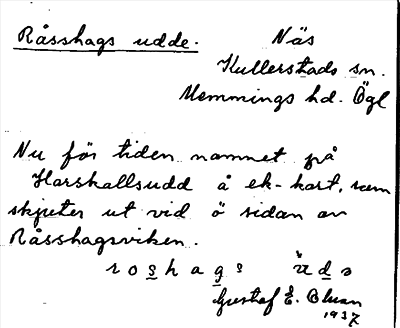 Råsshags udde.
Näs
Kullerstads sn.
Memmings hd. Ögl
Nu för tiden namnet på
Harskallsudd å ek-kart, som
skjuter ut vid ö sidan av
Råsshagsviken.
roshags uda
Gustaf E. Bluan
1937